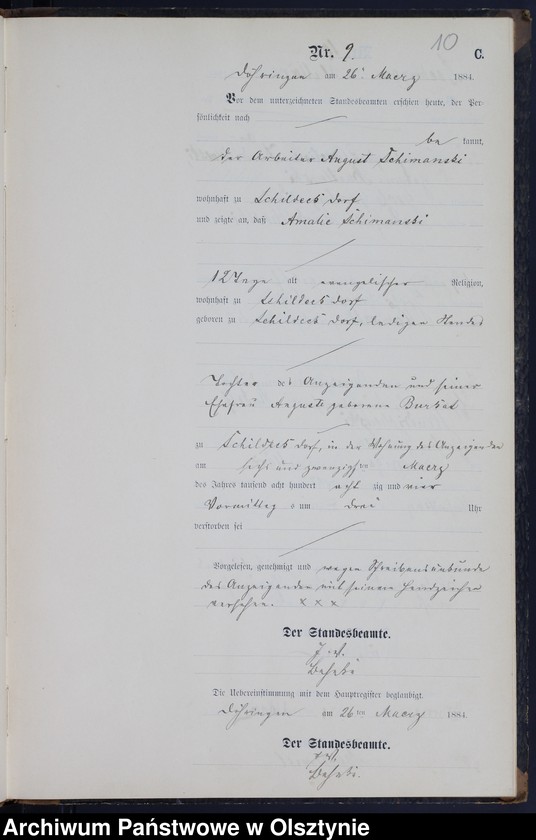 10
Nr. 9. C.
Döhringen am 26. Maerz 1884.
Vor dem unterzeichneten Standesbeamten erschien heute, der Per-
sönlichkeit nach
be kannt,
der Arbeiter August Schimanski
wohnhaft zu Schildeck Dorf
und zeigte an, daß Amalie Schimanski
12 Tage alt evangelischer Religion,
wohnhaft zu Schildeck Dorf
geboren zu Schildeck Dorf, ledigen Standes
Tochter des Anzeigenden und seiner
Ehefrau Auguste geborene
zu Schildeck Dorf, in der Wohnung des Anzeigenden
am sechs und zwanzigsten Maerz
des Jahres tausend acht hundert acht zig und vier
Vormittags um drei Uhr
verstorben sei
Vorgelesen, genehmigt und wegen Schreibensunkunde
des Anzeigenden mit seinem Handzeichen
versehen. x x x
Der Standesbeamte.
J. V.
Die Uebereinstimmung mit dem Hauptregister beglaubigt.
Döhringen am 26ten Maerz 1884.
Der Standesbeamte.
J. V.
Archiwum Państwowe w Olsztynie